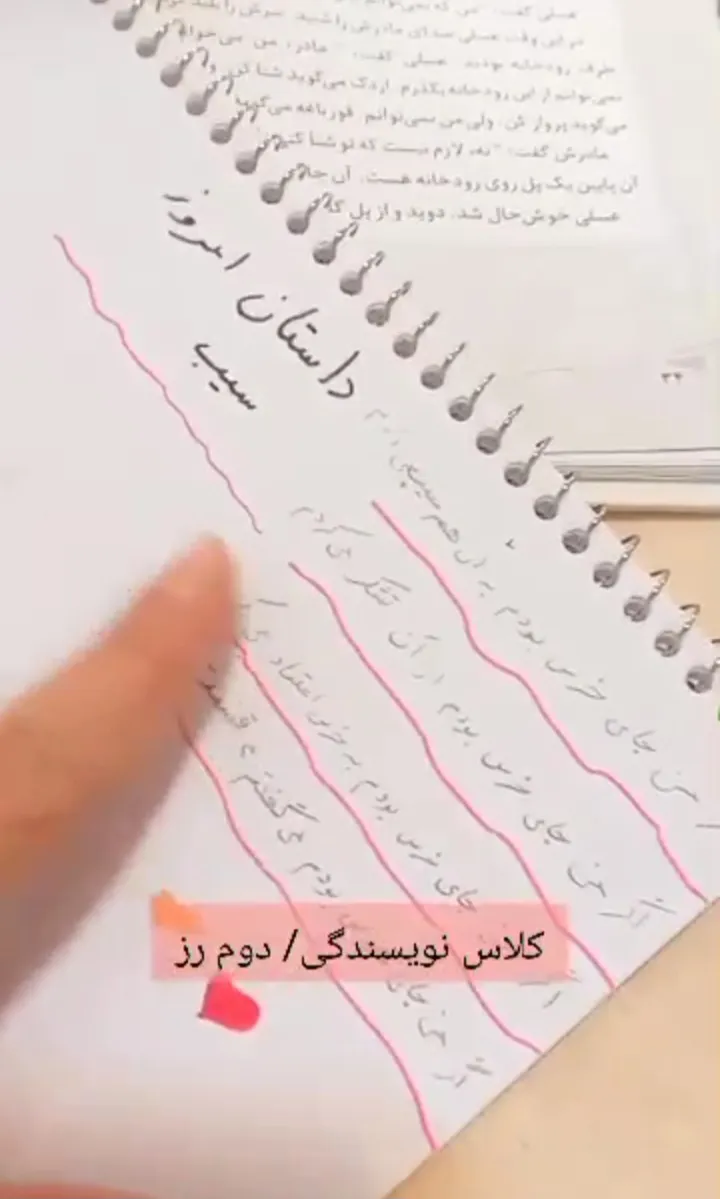 عسلی گفت: "من که نمی‌توانم
در این وقت عسلی صدای مادرش را شنید. سرش را بلند
طرف رودخانه بودند. عسلی گفت: "مادر، من می‌خواهم
نمی‌توانم از این رودخانه بگذرم. اردک می‌گوید شنا کن
می‌گوید پرواز کن. ولی من نمی‌توانم. قورباغه می‌گوید
مادرش گفت: "نه، لازم نیست که تو شنا کنی
آن پایین یک پل روی رودخانه هست. آن جا
عسلی خوش‌حال شد. دوید و از پل
۳۴
داستان امروز
سیب
من جای خرس بودم به آن هم سیب
اگر من جای خرس بودم از آن تشکر می‌کردم
جای خرس بودم به خرس اعتماد
اگر من جای بودم می‌گفتم
کلاس نویسندگی/ دوم رز